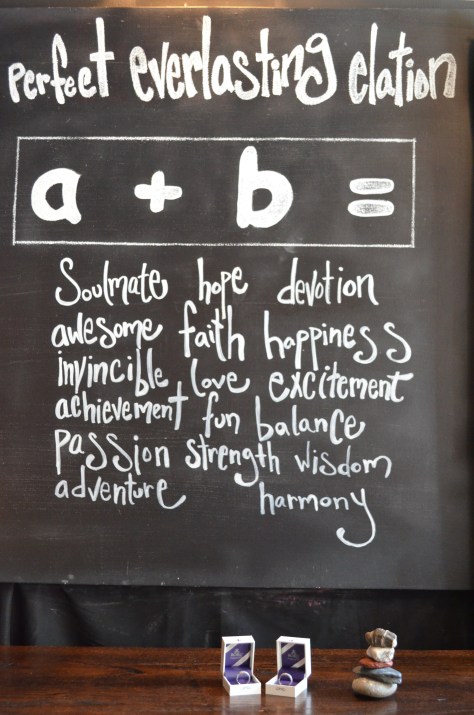 perfect everlasting elation
a + b =
Soulmate hope devotion
awesome faith happiness
invincible love excitement
achievement fun balance
passion strength wisdom
adventure harmony